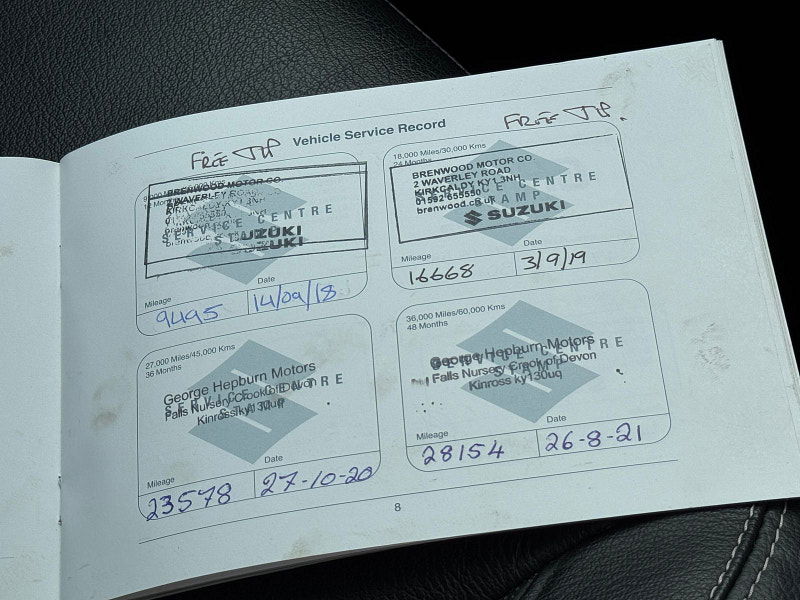 Vehicle Service Record
FREE
FREE
9,000 Miles/15,000 Kms
12 Months
BRENWOOD MOTOR CO.
2 WAVERLEY ROAD
SERVICE CENTRE
STAMP
SUZUKI
SUZUKI
Mileage
Date
9495
14/09/18
18,000 Miles/30,000 Kms
24 Months
BRENWOOD MOTOR CO.
2 WAVERLEY ROAD
KIRKCALDY KY1 3NH
01592 655550
brenwood.co.uk
SERVICE CENTRE
STAMP
SUZUKI
Mileage
Date
16668
3/9/19
27,000 Miles/45,000 Kms
36 Months
George Hepburn Motors
Falls Nursery Crook of Devon
Kinross ky130uq
SERVICE CENTRE
STAMP
Mileage
Date
23578
27-10-20
36,000 Miles/60,000 Kms
48 Months
George Hepburn Motors
Falls Nursery Crook of Devon
Kinross ky130uq
SERVICE CENTRE
STAMP
Mileage
Date
28154
26-8-21
8